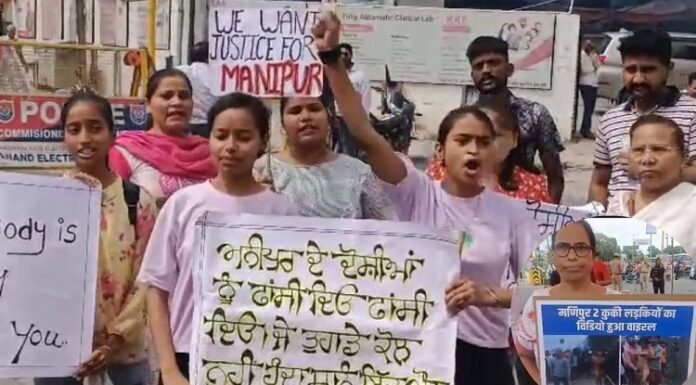 WE WANT
JUSTICE FOR
MANIPUR
Fully Automatic Clinical Lab
POLICE
COMMISSIONE
ANAND ELECTR
ody is
You.
ਮਨੀਪੁਰ ਦੇ ਦੋਸ਼ੀਆਂ
ਨੂੰ ਫਾਂਸੀ ਦਿਓ ਫਾਂਸੀ
ਦਿਓ ਜੇ ਤੁਹਾਡੇ ਕੋਲ
ਨਹੀਂ
मणिपुर 2 कुकी लड़कियों का
विडियो हुआ वाइरल